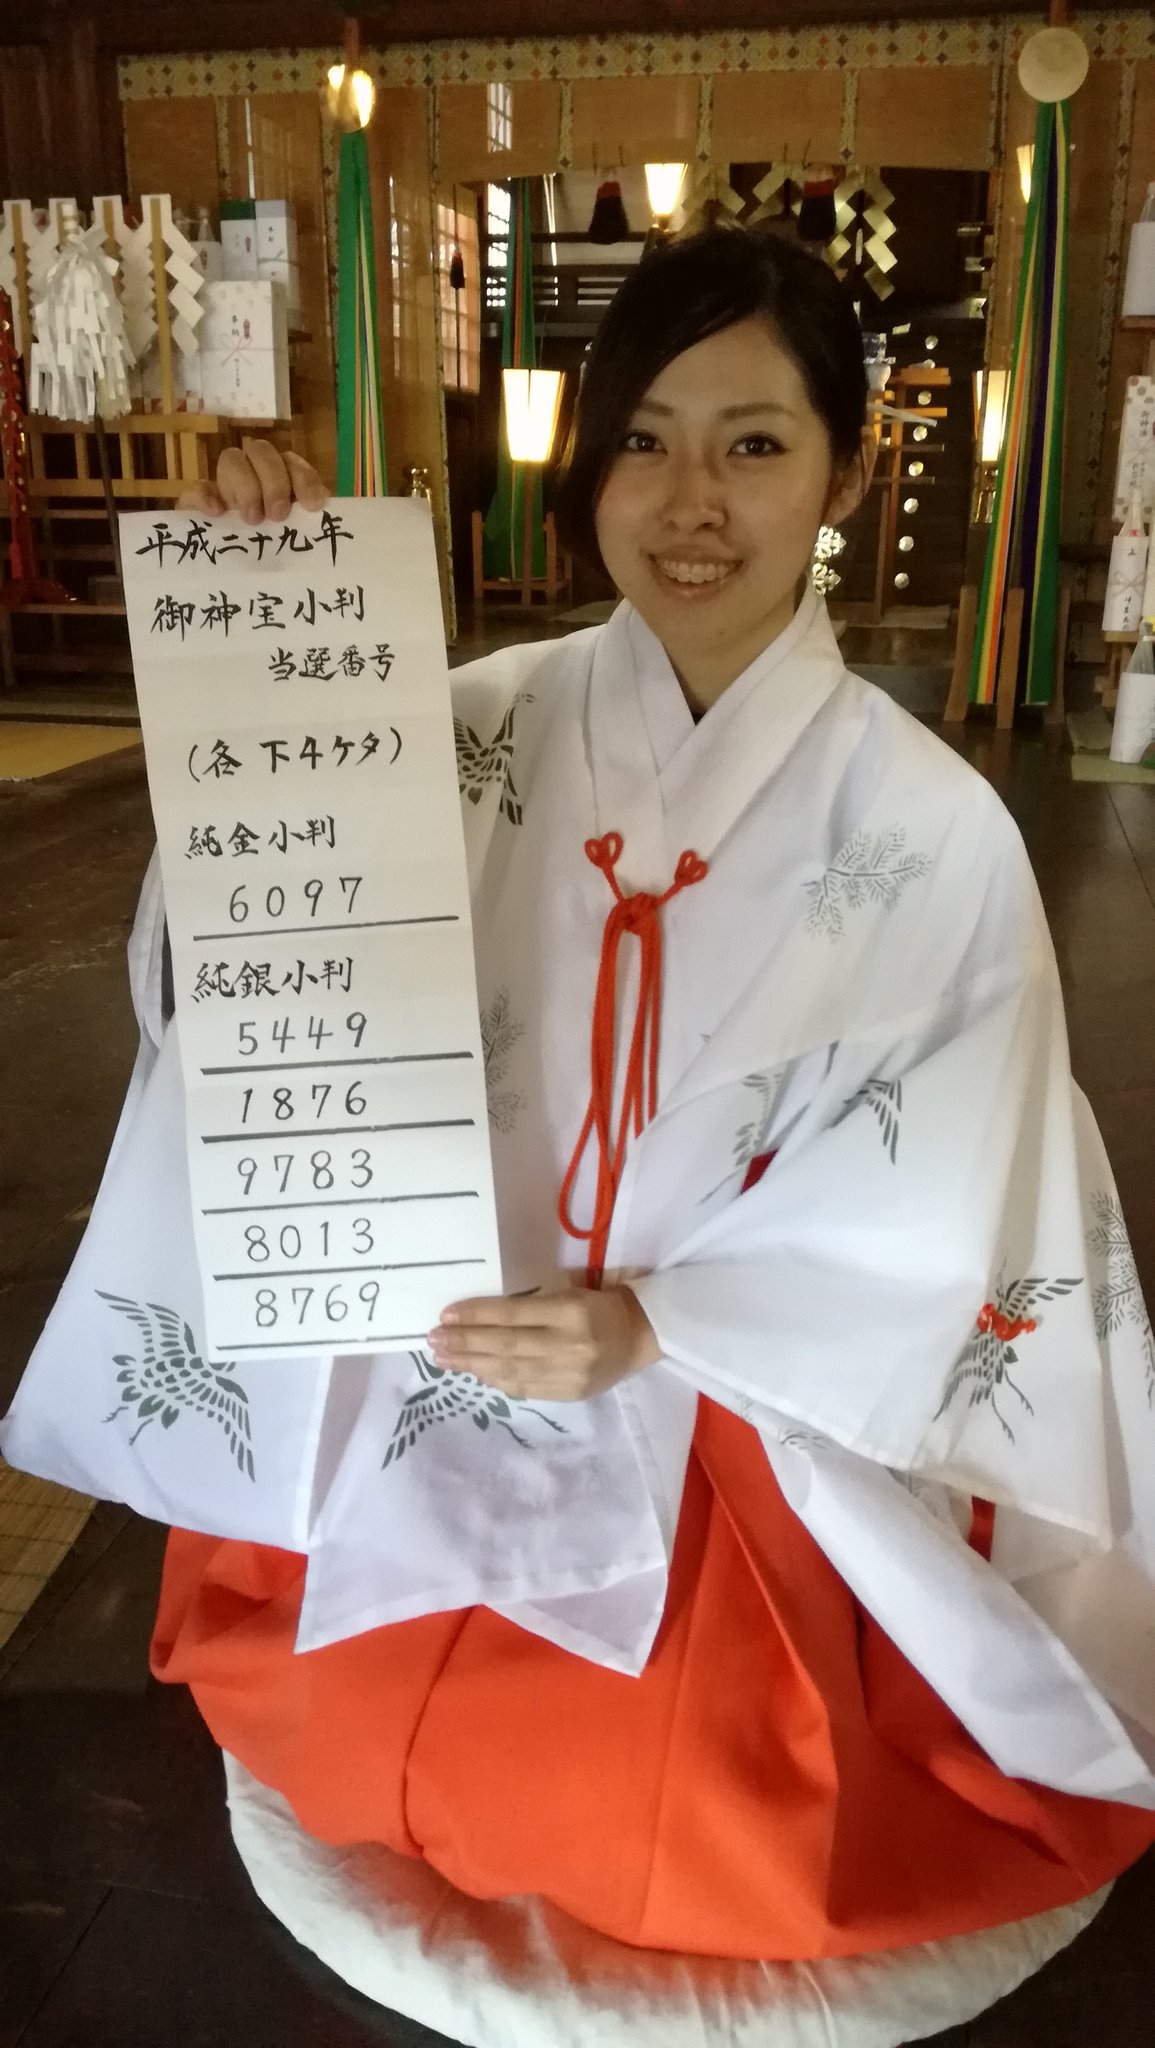 平成二十九年
御神宝小判
当選番号
(各 下4ケタ)
純金小判
6097
純銀小判
5449
1876
9783
8013
8769
奉納
御神酒
上